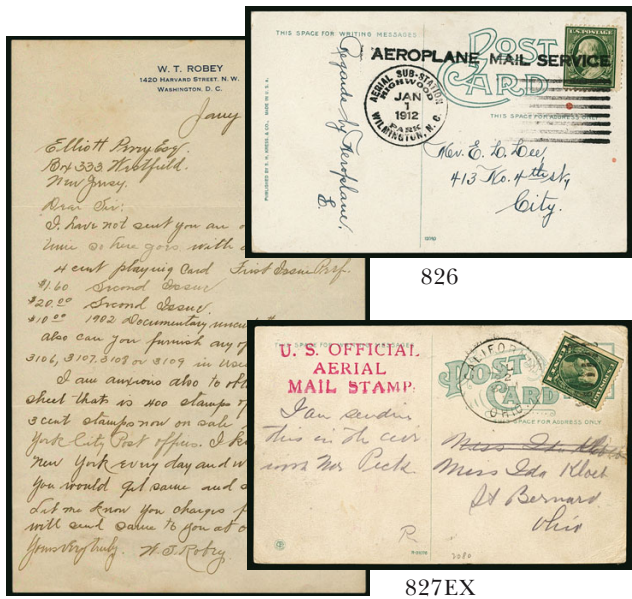 W. T. ROBEY
1420 HARVARD STREET, N. W.
WASHINGTON, D. C.
Jany
Elliott Perry Esq.
Box 333 Westfield.
New Jersey.
Dear Sir:
I have not sent you an
time so here goes with
4 cent playing Card First Issue Perf.
$1.60 Second Issue
$20.00 Second Issue.
$10.00 1902 Documentary
also can you furnish any of
3106, 3107, 3108 or 3109 in used
I am anxious also to
sheet that is 400 stamps of
3 cent stamps now on sale
York City Post office. I
New York every day and
You would get same and
Let me know you charges
will send same to you at
Yours very truly. W. T. Robey
THIS SPACE FOR WRITING MESSAGES
POST CARD
AEROPLANE MAIL SERVICE
U.S. POSTAGE
AERIAL SUB-STATION
HIGHWOOD
JAN
1
1912
PARK
WILMINGTON, N. C.
THIS SPACE FOR ADDRESS
Regards by Aeroplane,
E.
Mr. E. L. Lee,
413 No. 4th St,
City.
826
U. S. OFFICIAL
AERIAL
MAIL STAMP.
POST CARD
OHIO
SPACE FOR ADDRESS ONLY
I am sending
this in the air
with Mr Peck
R
Miss Ida Kloet
St Bernard
Ohio
827EX